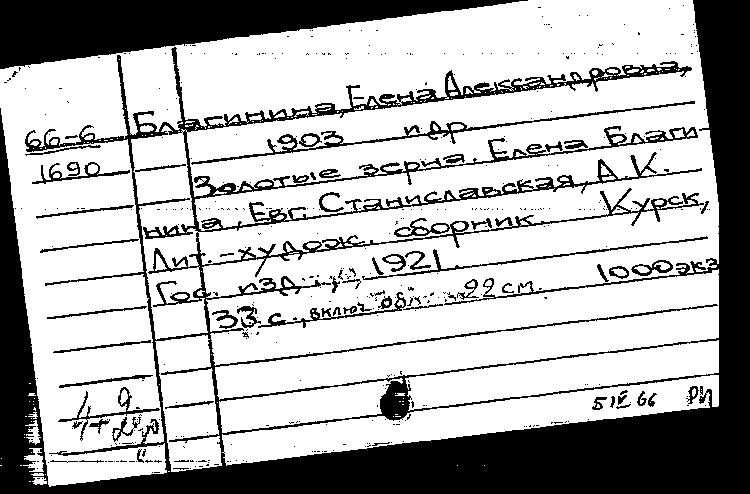 Благинина, Елена Александровна,
66-6
1903 и др.
1690
Золотые зерна. Елена Благи-
нина, Евг. Станиславская, А. К.
Лит.-худож. сборник. Курск,
Гос. изд-во, 1921.
33 с., включ. обл. 22 см. 1000 экз
4+
51Е 66 РИ